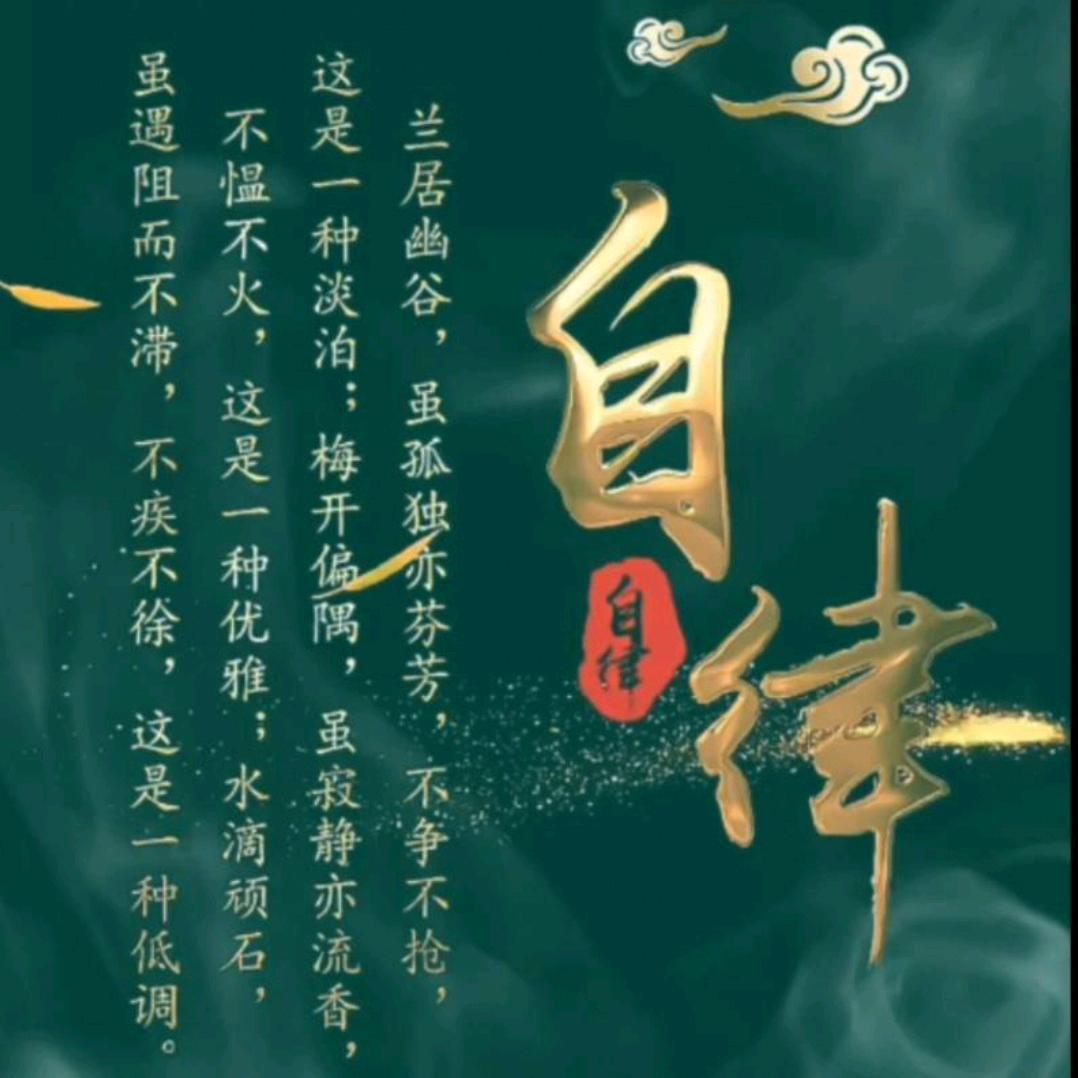 自律
自律
兰居幽谷，虽孤独亦芬芳，不争不抢，
这是一种淡泊；梅开偏隅，虽寂静亦流香，
不愠不火，这是一种优雅；水滴顽石，
虽遇阻而不滞，不疾不徐，这是一种低调。